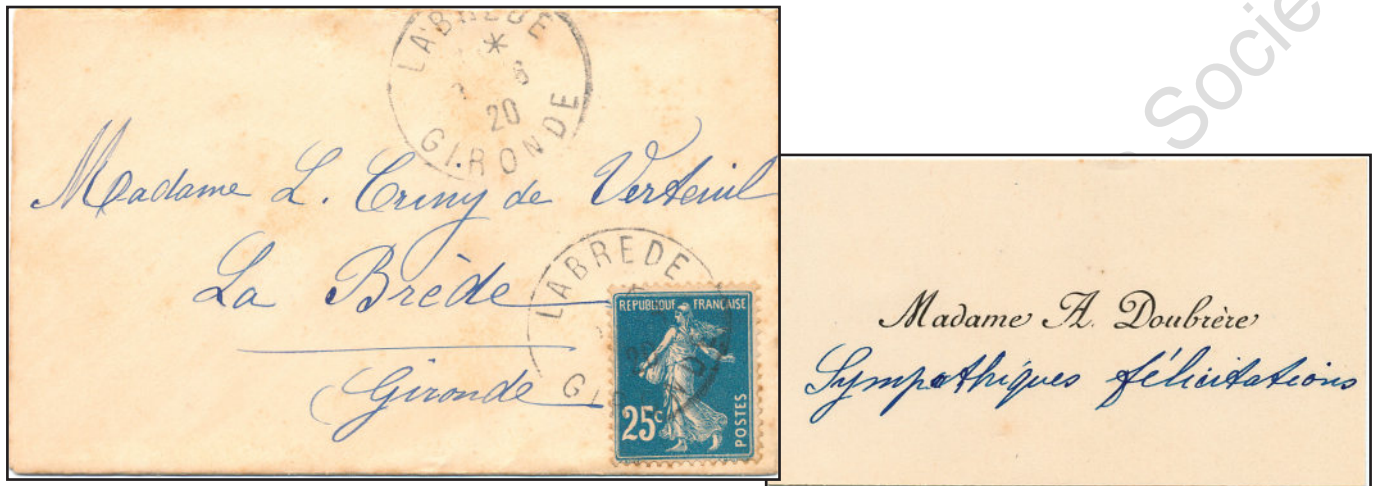 LABREDE
*
6
20
GIRONDE
Madame L. Criny de Verteuil
La Brède
Gironde
LABREDE
REPUBLIQUE FRANCAISE
25c
POSTES
Madame A. Doubrère
Sympathiques félicitations
Socie